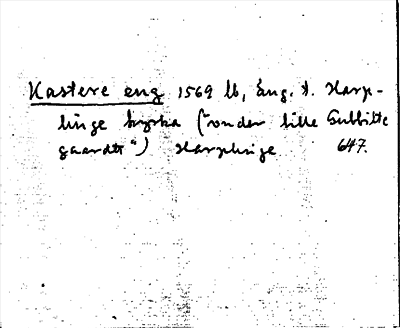 Kastere eng 1569 lb, äng. t. Harp-
linge kyrka ("onder lille Gulbilte
gaardtt") Harplinge 647.